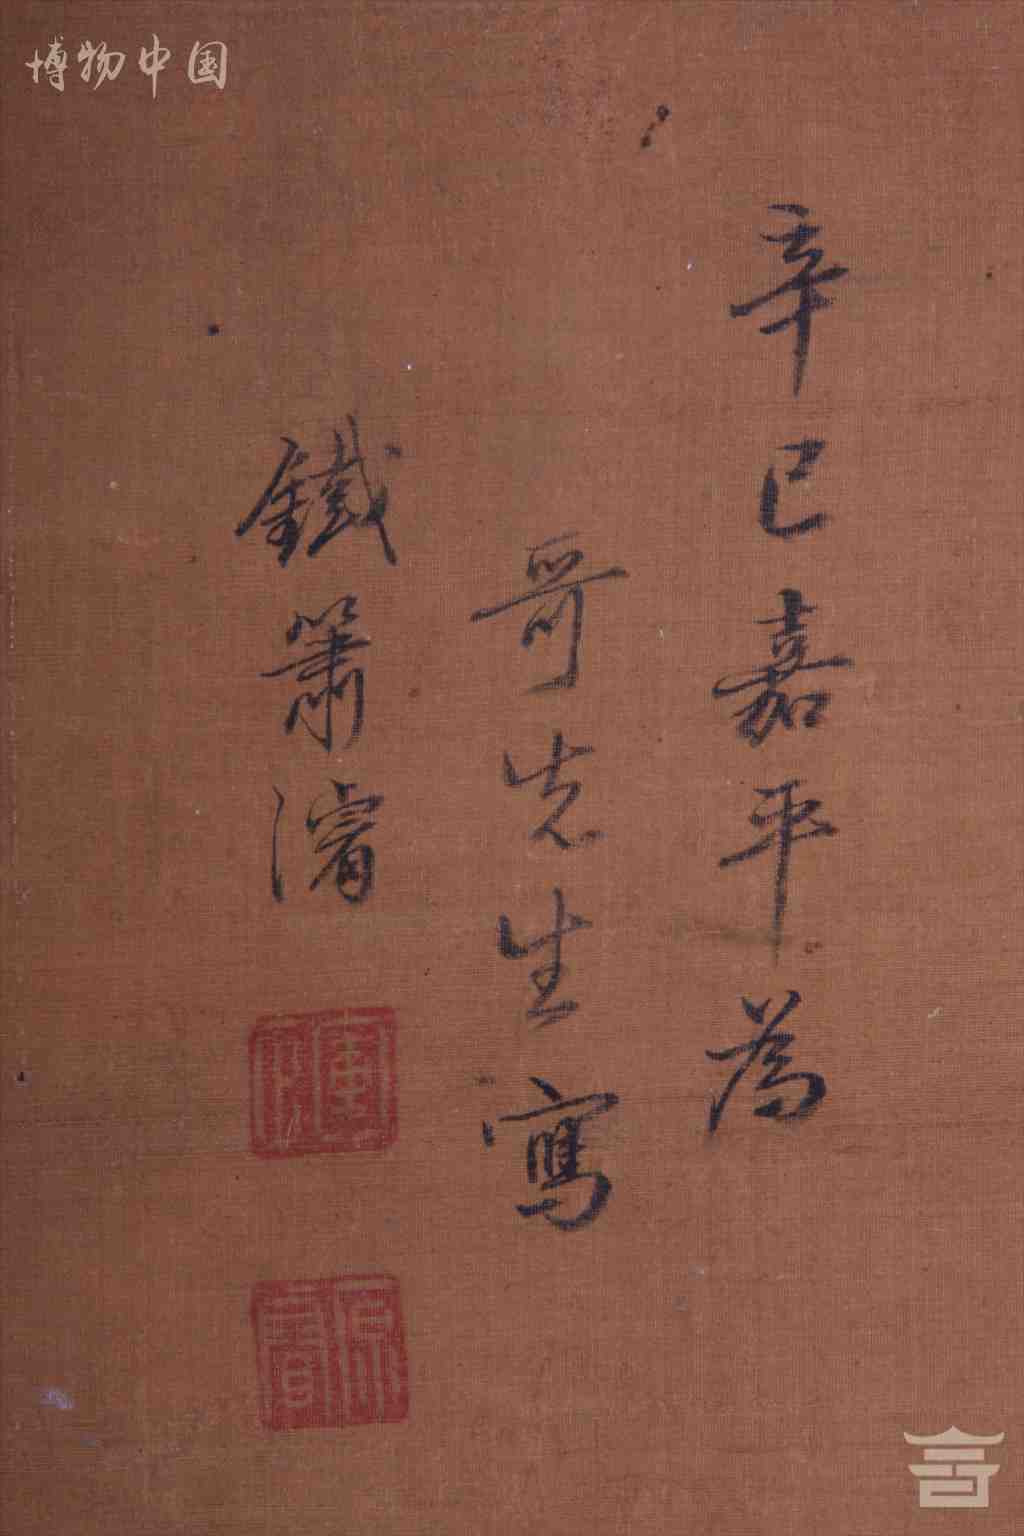 博物中国
辛巳嘉平為
哥先生寫
鐵簫濬